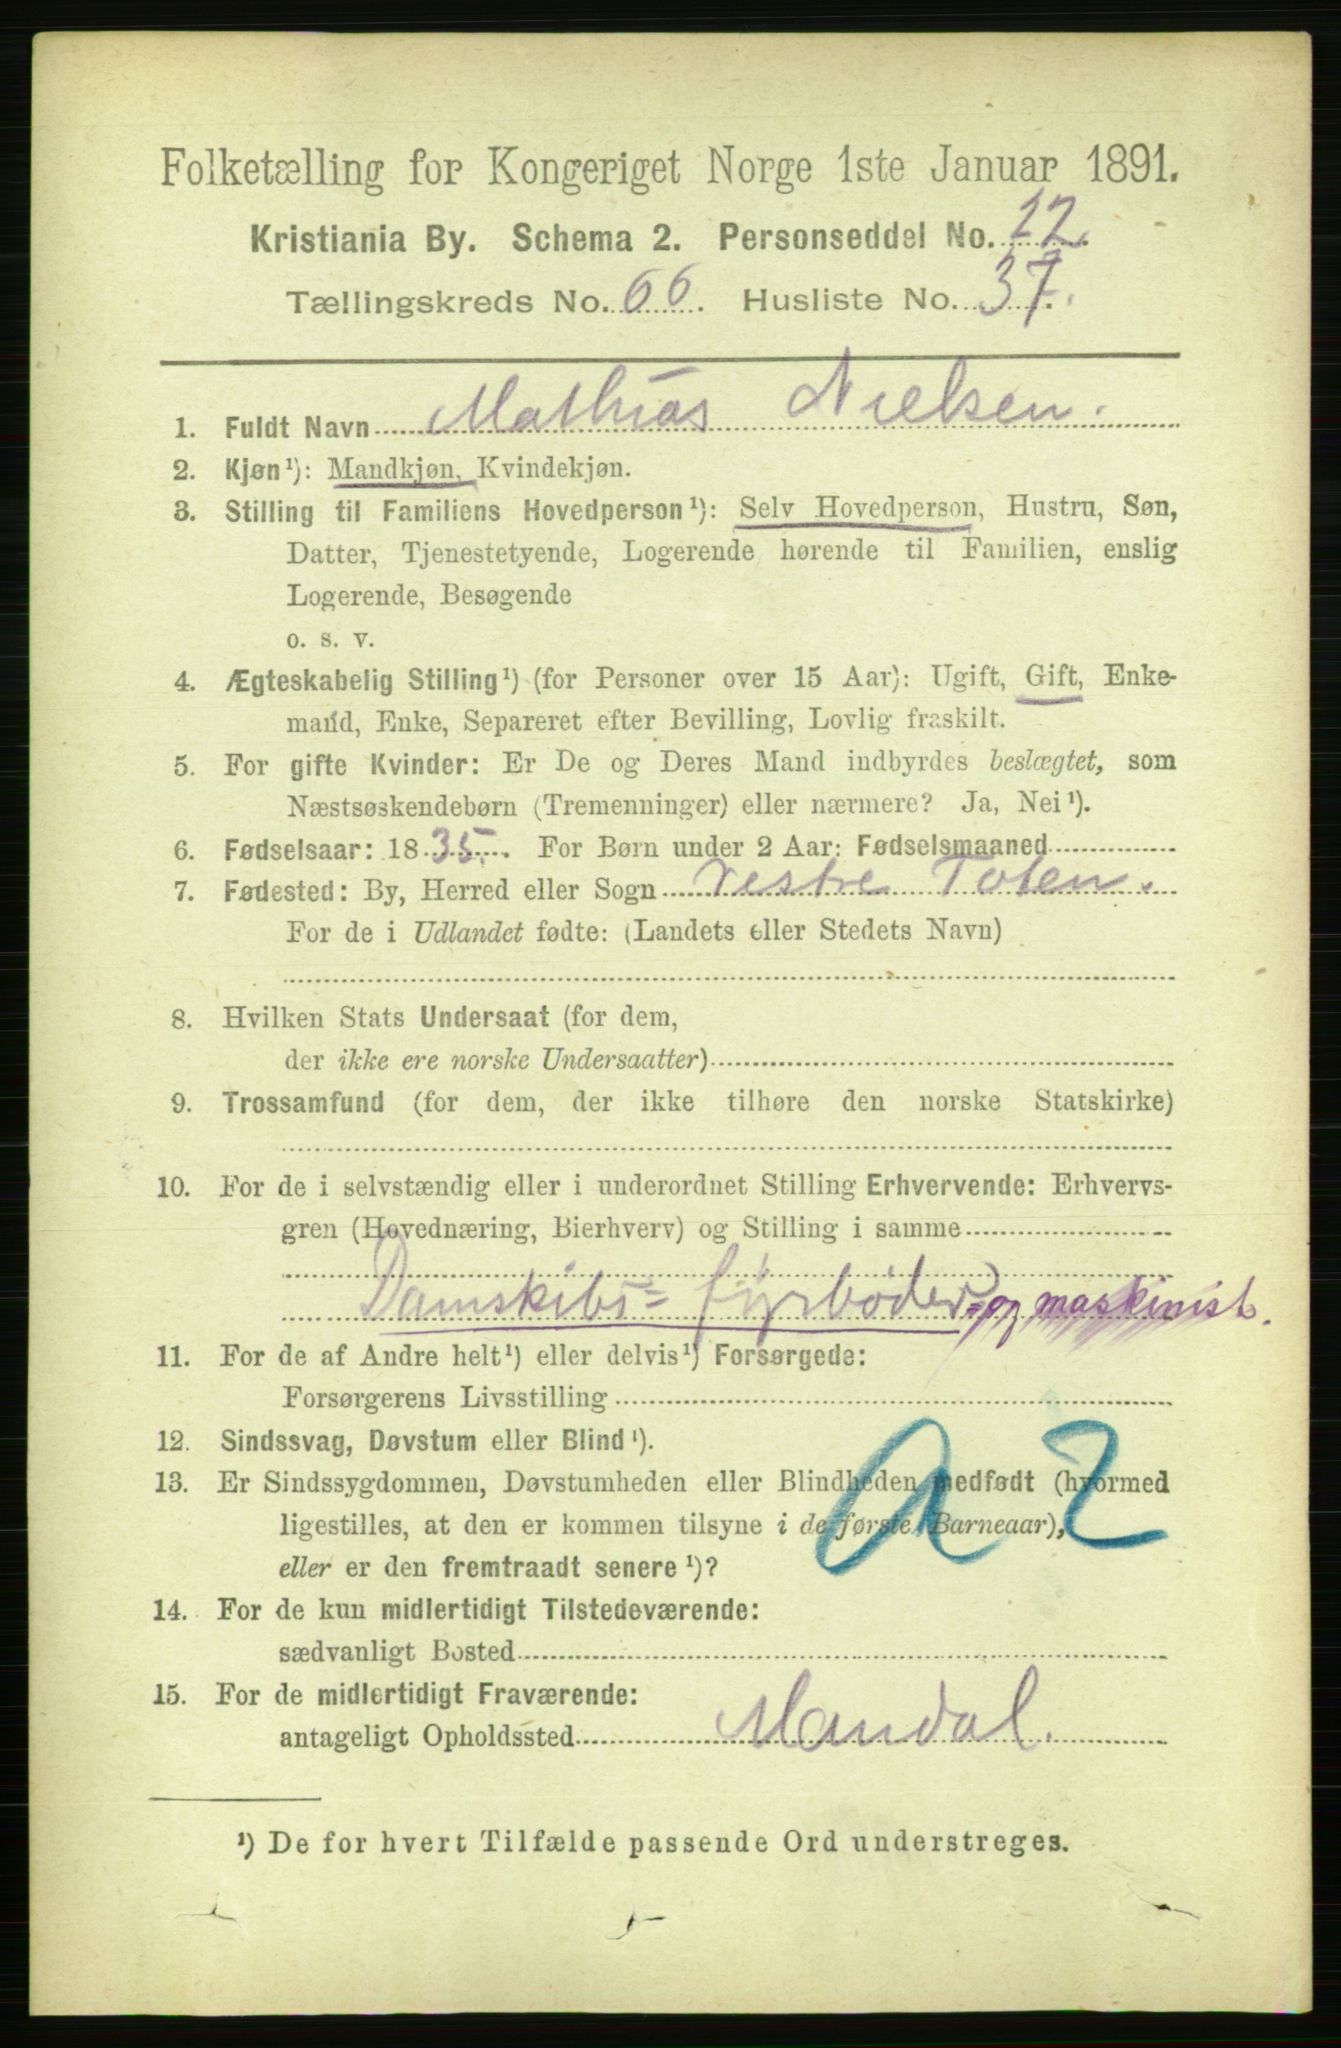 Folketælling for Kongeriget Norge 1ste Januar 1891.
Kristiania By. Schema 2. Personseddel No. 12.
Tællingskreds No. 66. Husliste No. 37.
1. Fuldt Navn Mathias Nielsen.
2. Kjøn¹): Mandkjøn, Kvindekjøn.
3. Stilling til Familiens Hovedperson¹): Selv Hovedperson, Hustru, Søn,
Datter, Tjenestetyende, Logerende hørende til Familien, enslig
Logerende, Besøgende
o. s. v.
4. Ægteskabelig Stilling¹) (for Personer over 15 Aar): Ugift, Gift, Enke-
mand, Enke, Separeret efter Bevilling, Lovlig fraskilt.
5. For gifte Kvinder: Er De og Deres Mand indbyrdes beslægtet, som
Næstsøskendebørn (Tremenninger) eller nærmere? Ja, Nei¹).
6. Fødselsaar: 1835. For Børn under 2 Aar: Fødselsmaaned
7. Fødested: By, Herred eller Sogn Vestre Toten.
For de i Udlandet fødte: (Landets eller Stedets Navn)
8. Hvilken Stats Undersaat (for dem,
der ikke ere norske Undersaatter)
9. Trossamfund (for dem, der ikke tilhøre den norske Statskirke)
10. For de i selvstændig eller i underordnet Stilling Erhvervende: Erhvervs-
gren (Hovednæring, Bierhverv) og Stilling i samme
Damskibs= fyrbøder og maskinist.
11. For de af Andre helt¹) eller delvis¹) Forsørgede:
Forsørgerens Livsstilling
12. Sindssvag, Døvstum eller Blind¹).
13. Er Sindssygdommen, Døvstumheden eller Blindheden medfødt (hvormed
ligestilles, at den er kommen tilsyne i de første Barneaar),
eller er den fremtraadt senere¹)?
a 2
14. For de kun midlertidigt Tilstedeværende:
sædvanligt Bosted
15. For de midlertidigt Fraværende:
antageligt Opholdssted Mandal.
¹) De for hvert Tilfælde passende Ord understreges.